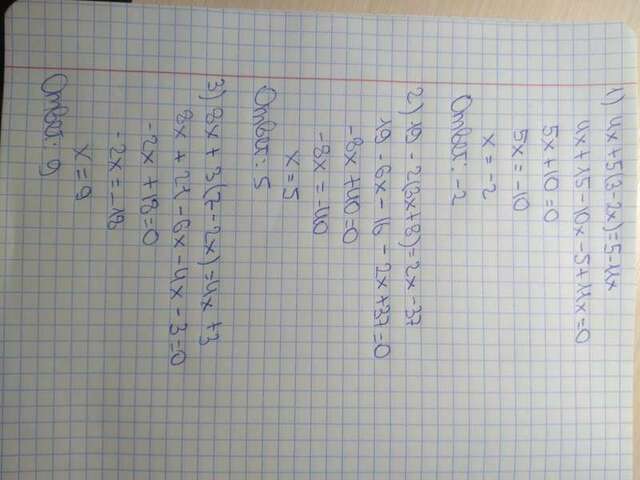 1) 4x+5(3-2x)=5-11x
4x+15-10x-5+11x=0
5x+10=0
5x=-10
x=-2
Ответ: -2
2) 19-2(3x+8)=2x-37
19-6x-16-2x+37=0
-8x+40=0
-8x=-40
x=5
Ответ: 5
3) 8x+3(7-2x)=4x+3
8x+21-6x-4x-3=0
-2x+18=0
-2x=-18
x=9
Ответ: 9